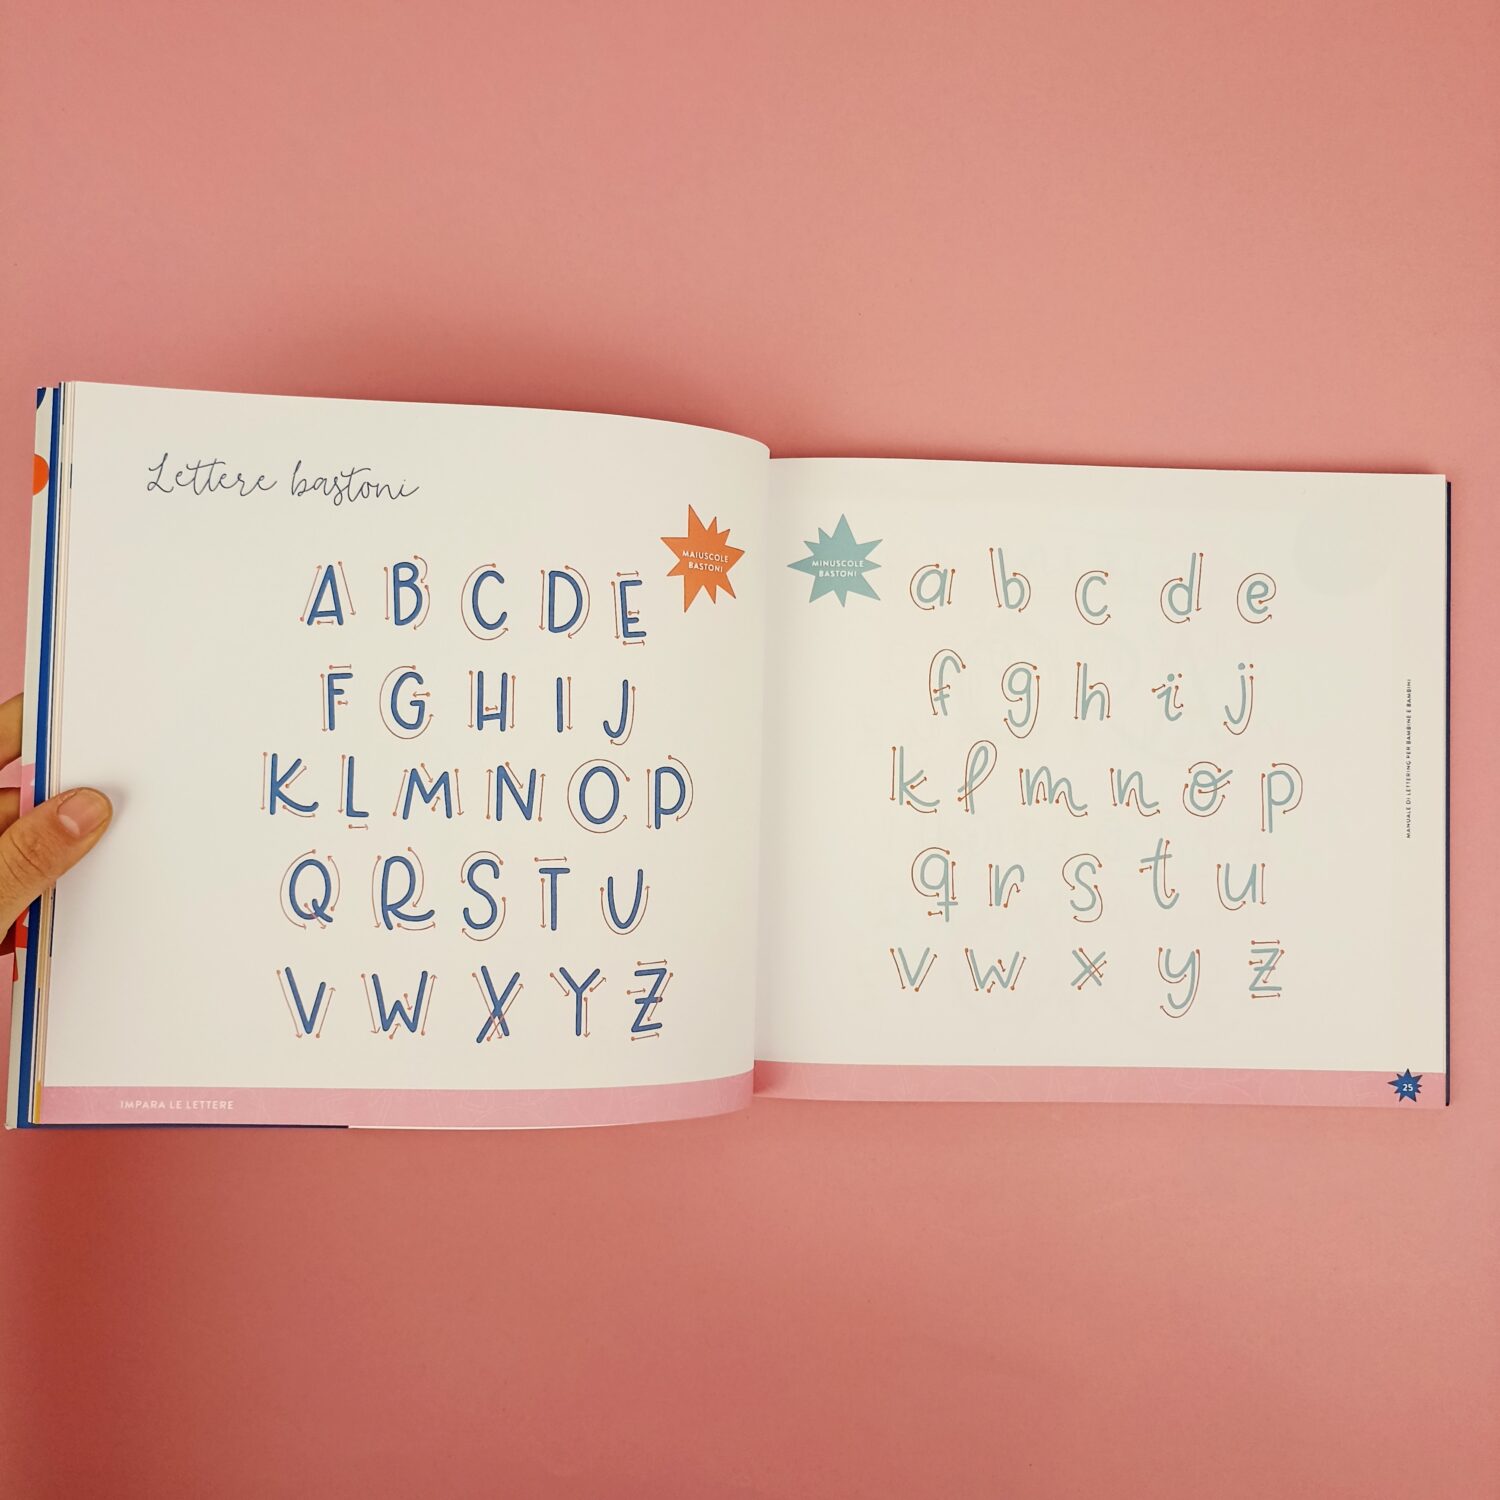 Lettere bastoni
MAIUSCOLE
BASTONI
A B C D E
F G H I J
K L M N O P
Q R S T U
V W X Y Z
IMPARA LE LETTERE
MINUSCOLE
BASTONI
a b c d e
f g h i j
k l m n o p
q r s t u
v w x y z
MANUALE DI LETTERING PER BAMBINE E BAMBINI
25